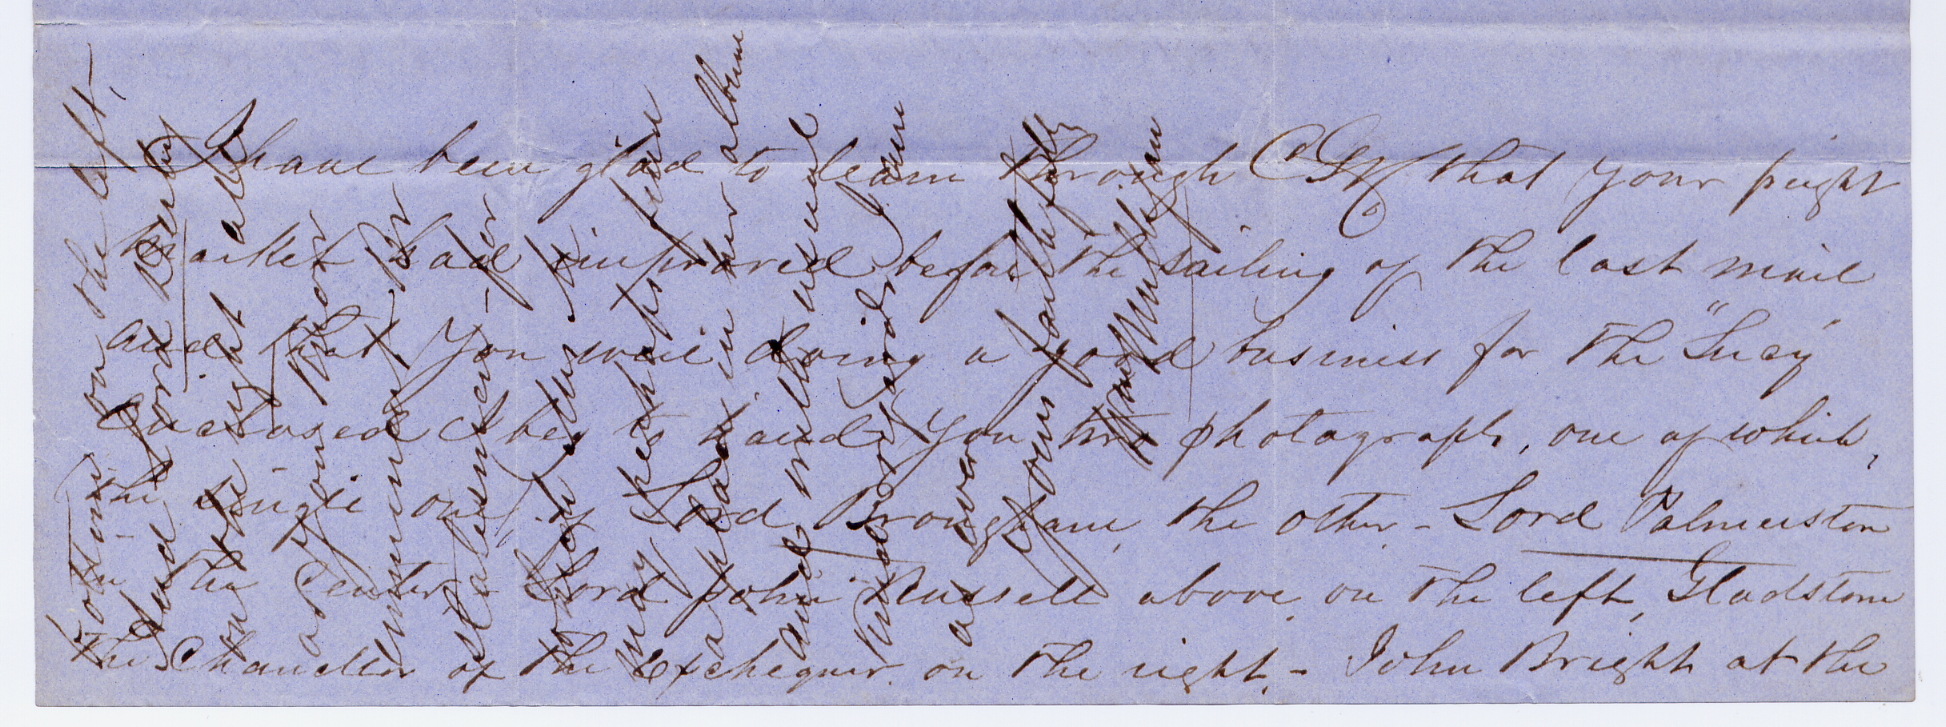 I have been glad to learn through CGW that your freight
market had improved before the sailing of the last mail
and that you were doing a good business for the "Lucy"
Enclosed I beg to hand you two photographs, one of which,
the single one, is Lord Brougham, the other - Lord Palmerston
in the center - Lord John Russell above, on the left, Gladstone
the Chancellor of the Exchequer, on the right. - John Bright at the
bottom on the left,
and Lord Derby
on the right
statesmen - for
which
may perhaps find
a place in her album
and with usual
kind regards
as ever
Yours faithfully